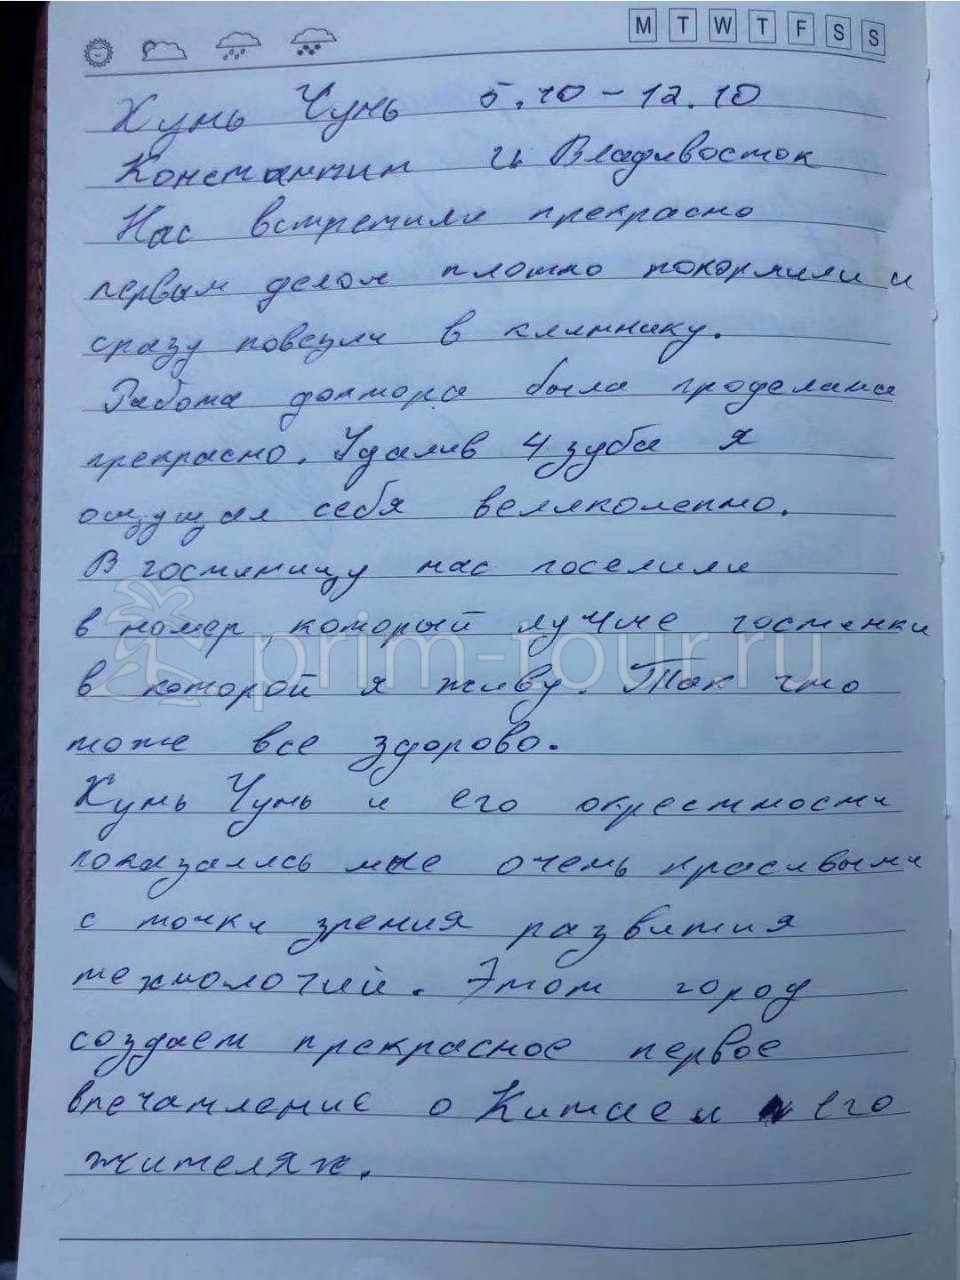 M T W T F S S
Хунь Чунь 5.10-12.10
Константин г. Владивосток
Нас встретили прекрасно
первым делом плотно покормили и
сразу повезли в клиннику.
Работа доктора была проделана
прекрасно. Удалив 4 зуба я
ощущал себя великолепно.
В гостиницу нас поселили
в номер который лучше гостинки
в которой я живу. Так что
тоже все здорово.
Хунь Чунь и его окрестности
показались мне очень красивыми
с точки зрения развития
технологий. Этот город
создает прекрасное первое
впечатление о Китае и его
жителях.
prim-tour.ru